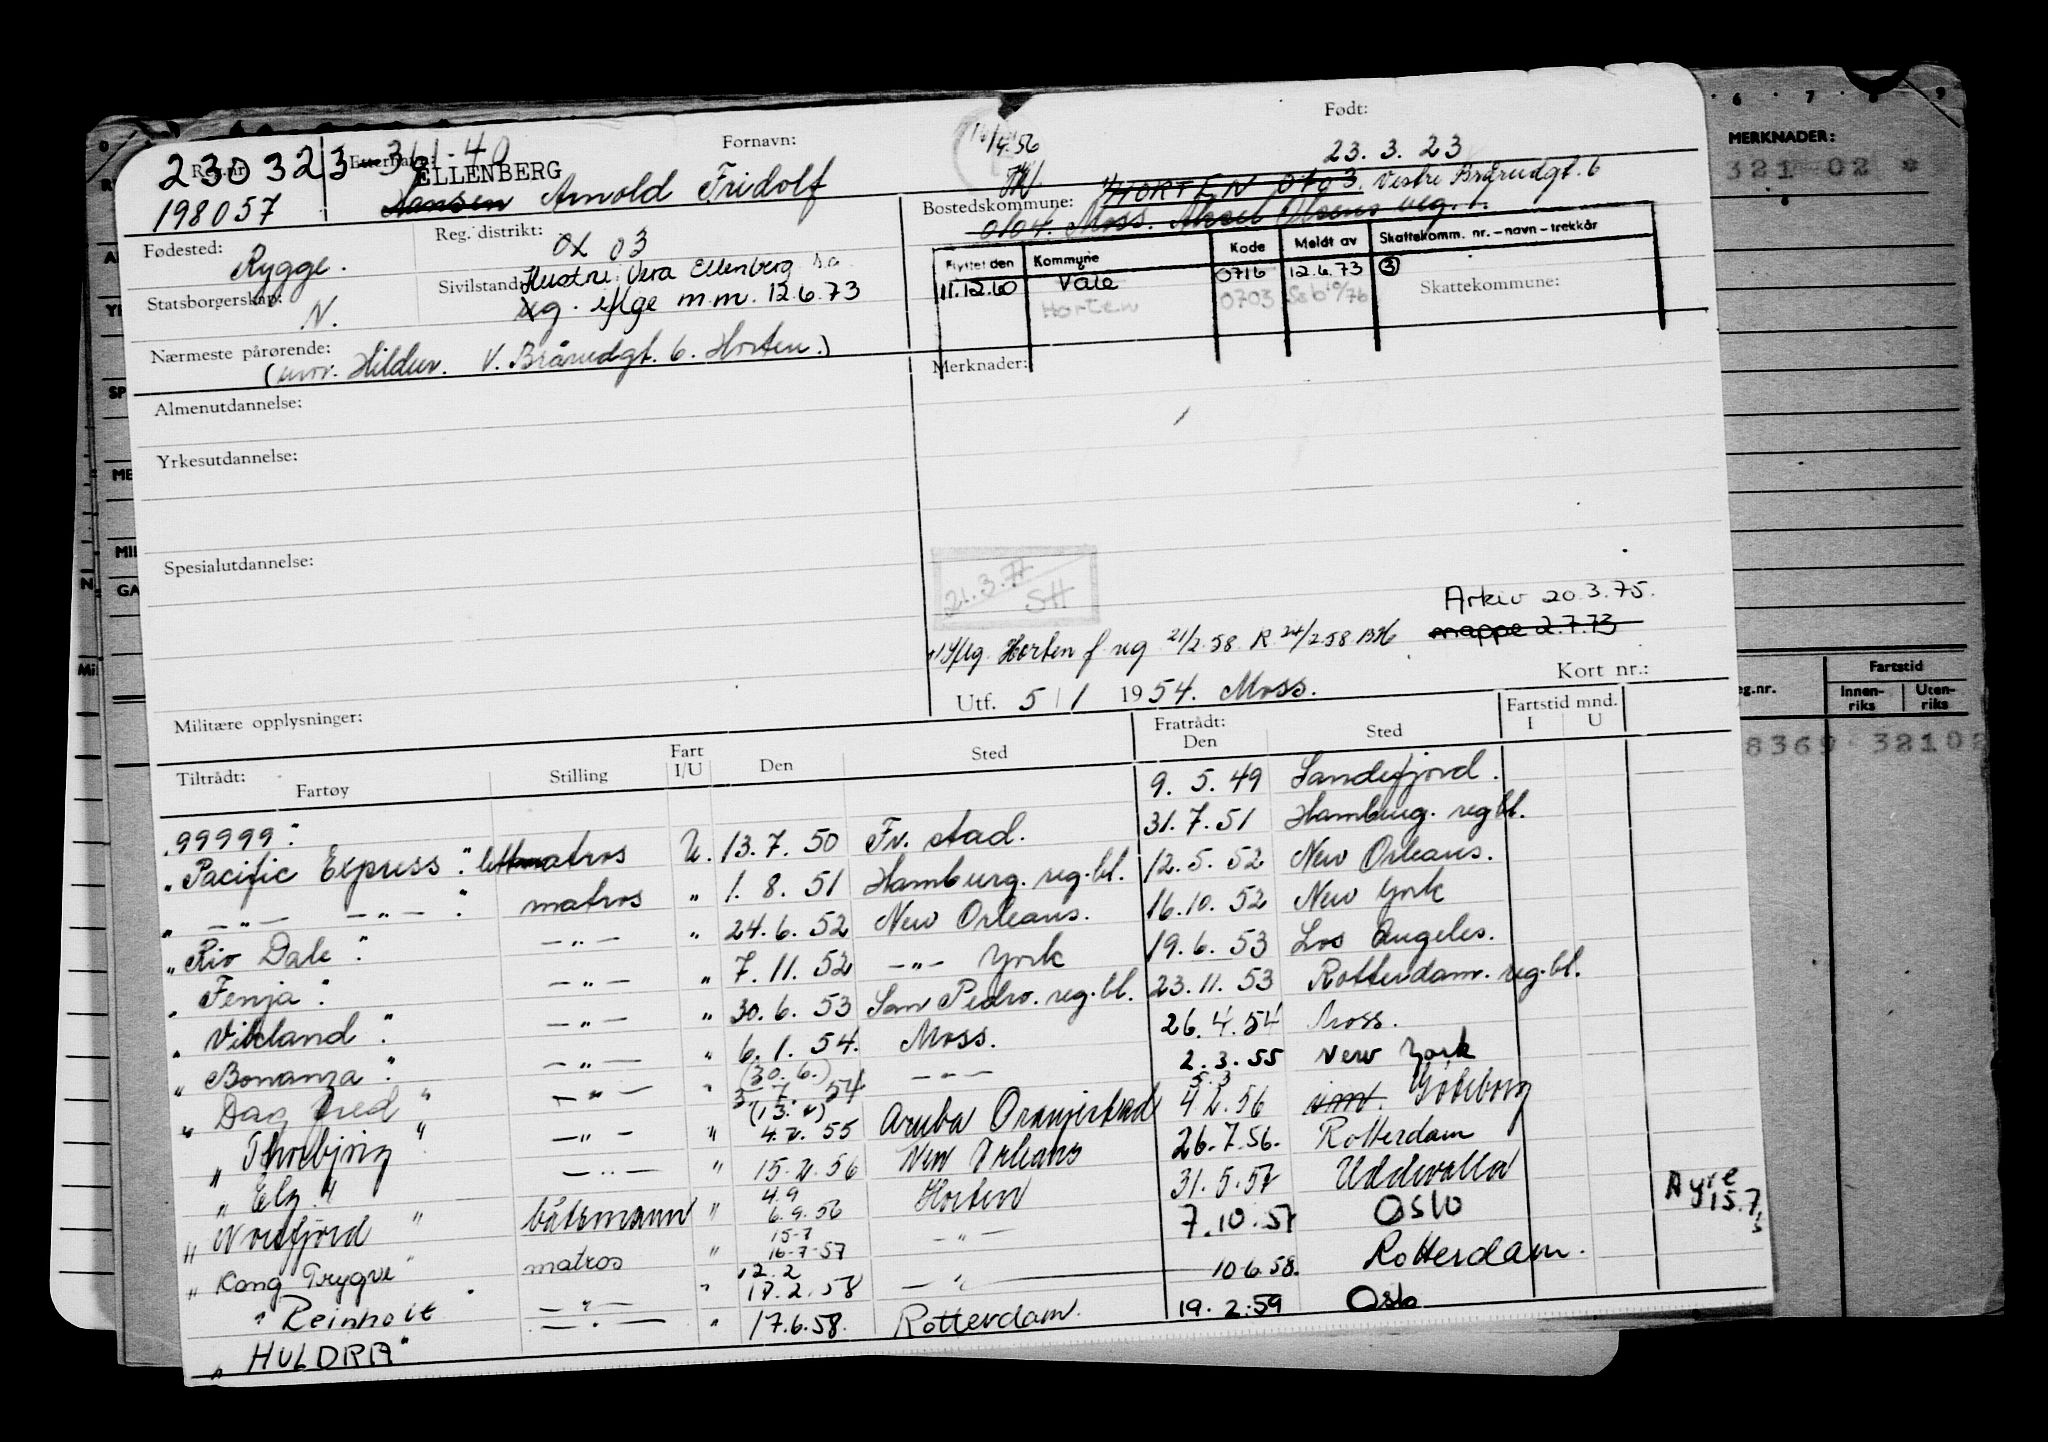 230323
Reg.nr.
Etternavn:
Fornavn:
Født:
MERKNADER:
198057
ELLENBERG
Hansen Arnold Fridolf
23. 3. 23
321 02 *
Bostedskommune:
HORTEN 0703. Vestre Brårudgt. 6
0104. Moss.
Fødested:
Rygge.
Reg. distrikt:
OL 03
Flyttet den
Kommune
Kode
Meldt av
Skattekomm. nr.-navn-trekkår
Statsborgerskap:
N.
Sivilstand:
Hustru: Vera Ellenberg s.a.
xg. iflge m.m. 12.6.73
11.12.60
Våle
0716
12.6.73
3
Horten
0703
Skattekommune:
Nærmeste pårørende:
(mor. Hildur. V. Brårudgt. 6. Horten.)
Merknader:
Almenutdannelse:
Yrkesutdannelse:
Spesialutdannelse:
21.3.77
SH
Arkiv 20.3.75.
mappe 2.7.73
Horten f reg 21/2.58. R 24/2.58
Utf. 5/1 1954. Moss.
Kort nr.:
Militære opplysninger:
Tiltrådt:
Fartøy
Stilling
Fart I/U
Den
Sted
Fratrådt:
Den
Sted
Fartstid mnd.
I
U
eg.nr.
Fartstid
Innen-riks
Uten-riks
8369 32102
"99999." 9. 5. 49 Sandefjord.
"Pacific Express." lettmatros U. 13. 7. 50 Fr. stad. 31. 7. 51 Hamburg. reg.bl.
" -"- -"- " matros " 1. 8. 51 Hamburg. reg.bl. 12. 5. 52 New Orleans.
"Rio Dale." -"- " 24. 6. 52 New Orleans. 16.10. 52 New York
"Fenja." -"- " 7. 11. 52 -"- York 19. 6. 53 Los Angeles.
"Vikland." -"- " 30. 6. 53 San Pedro. reg.bl. 23. 11. 53 Rotterdam. reg.bl.
"Bonanza." -"- " 6. 1. 54. Moss. 26. 4. 54 Moss.
"Dag Fred" -"- " (30. 6.) 3 7. 54 -"- 2. 3. 55 New York
"Thorbjørg" -"- " 4.4. 55 Aruba Oranjestad 5.3 4 2. 56 Göteborg
"Elg." -"- " 15. 2. 56 New Orleans 26. 7. 56. Rotterdam
"Nordfjord" båtsmann " 4.9 6. 9. 56 Horten 31. 5. 57 Uddevalla
"Kong Trygve" matros " 15-7 16-7-57 -"- 7. 10. 57 Oslo
"Reinholt" -"- " 12.2 17. 2. 58 -"- 10 6. 58. Rotterdam.
"HULDRA" -"- " 17. 6. 58. Rotterdam. 19. 2. 59 Oslo
15.7